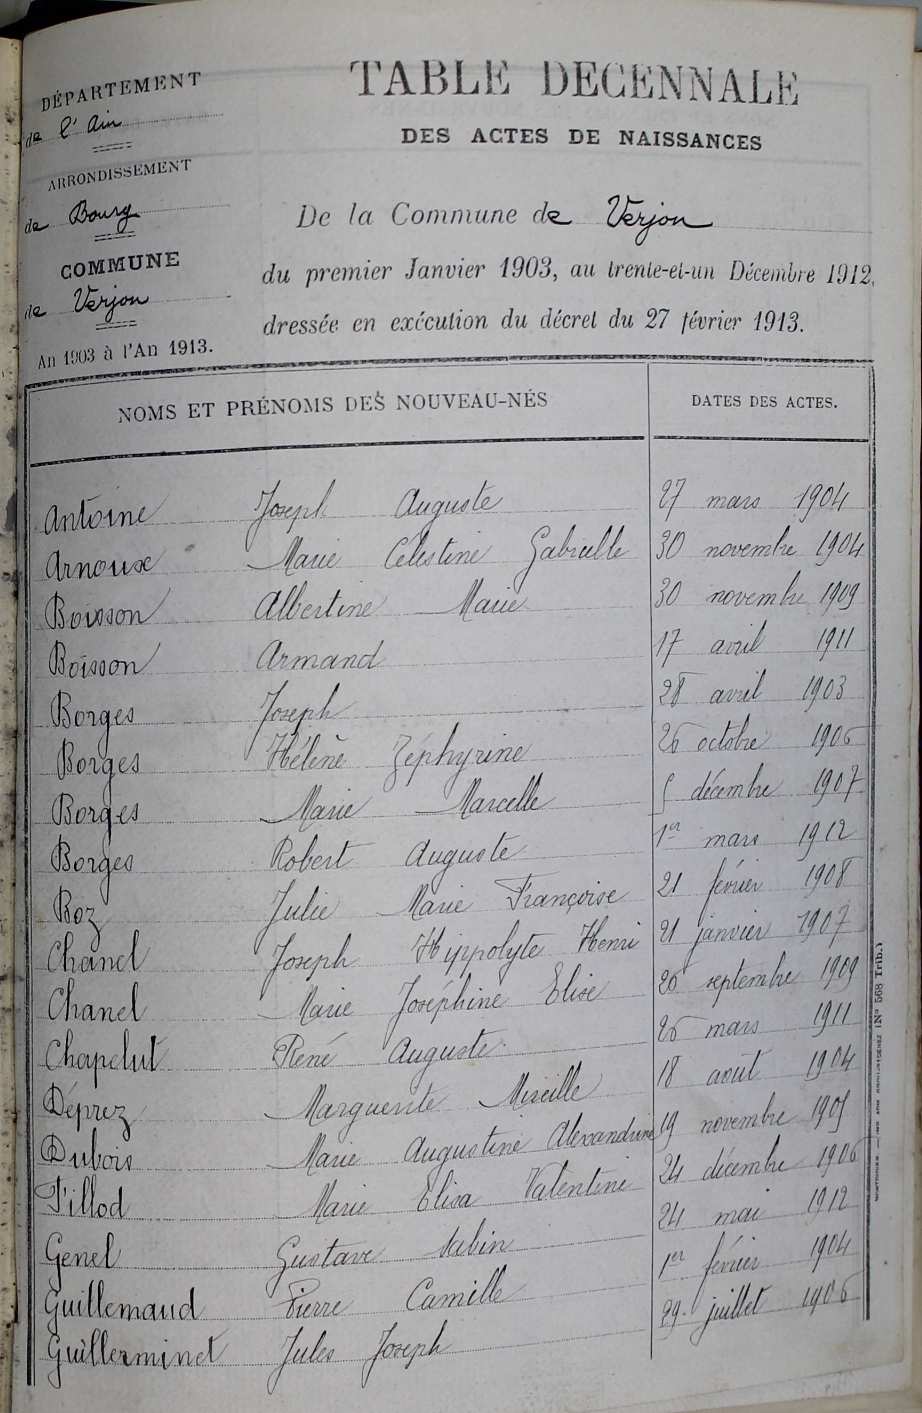 DÉPARTEMENT
de l'Ain
ARRONDISSEMENT
de Bourg
COMMUNE
de Verjon
An 1903 à l'An 1913.
TABLE DECENNALE
DES ACTES DE NAISSANCES
De la Commune de Verjon
du premier Janvier 1903, au trente-et-un Décembre 1912,
dressée en exécution du décret du 27 février 1913.
NOMS ET PRÉNOMS DES NOUVEAU-NÉS DATES DES ACTES.
Antoine Joseph Auguste 27 mars 1904
Arnoux Marie Célestine Gabrielle 30 novembre 1904
Boisson Albertine Marie 30 novembre 1909
Boisson Armand 17 avril 1911
Borges Joseph 28 avril 1903
Borges Hélène Zéphyrine 26 octobre 1906
Borges Marie Marcelle 5 décembre 1907
Borges Robert Auguste 1er mars 1912
Boz Julie Marie Françoise 21 février 1908
Chanel Joseph Hippolyte Henri 21 janvier 1907
Chanel Marie Joséphine Elise 26 septembre 1909
Chapelut René Auguste 26 mars 1911
Déprez Marguerite Mireille 18 août 1904
Dubois Marie Augustine Alexandrine 19 novembre 1905
Fillod Marie Elisa Valentine 24 décembre 1906
Genel Gustave Sabin 24 mai 1912
Guillemaud Pierre Camille 1er février 1904
Guillerminet Jules Joseph 29 juillet 1906
(No 568 Trib.)